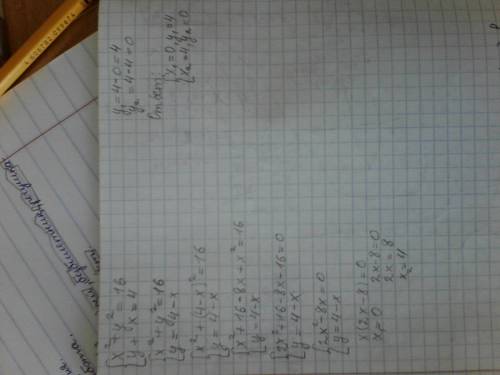 {x²+y²=16
{y+x=4
{x²+y²=16
{y=4-x
{x²+(4-x)²=16
{y=4-x
{x²+16-8x+x²=16
{y=4-x
{2x²+16-8x-16=0
{y=4-x
{2x²-8x=0
{y=4-x
x(2x-8)=0
x₁=0 2x-8=0
2x=8
x₂=4
y₁=4-0=4
y₂=4-4=0
Ответ:
{x₁=0, y₁=4
{x₂=4, y₂=0